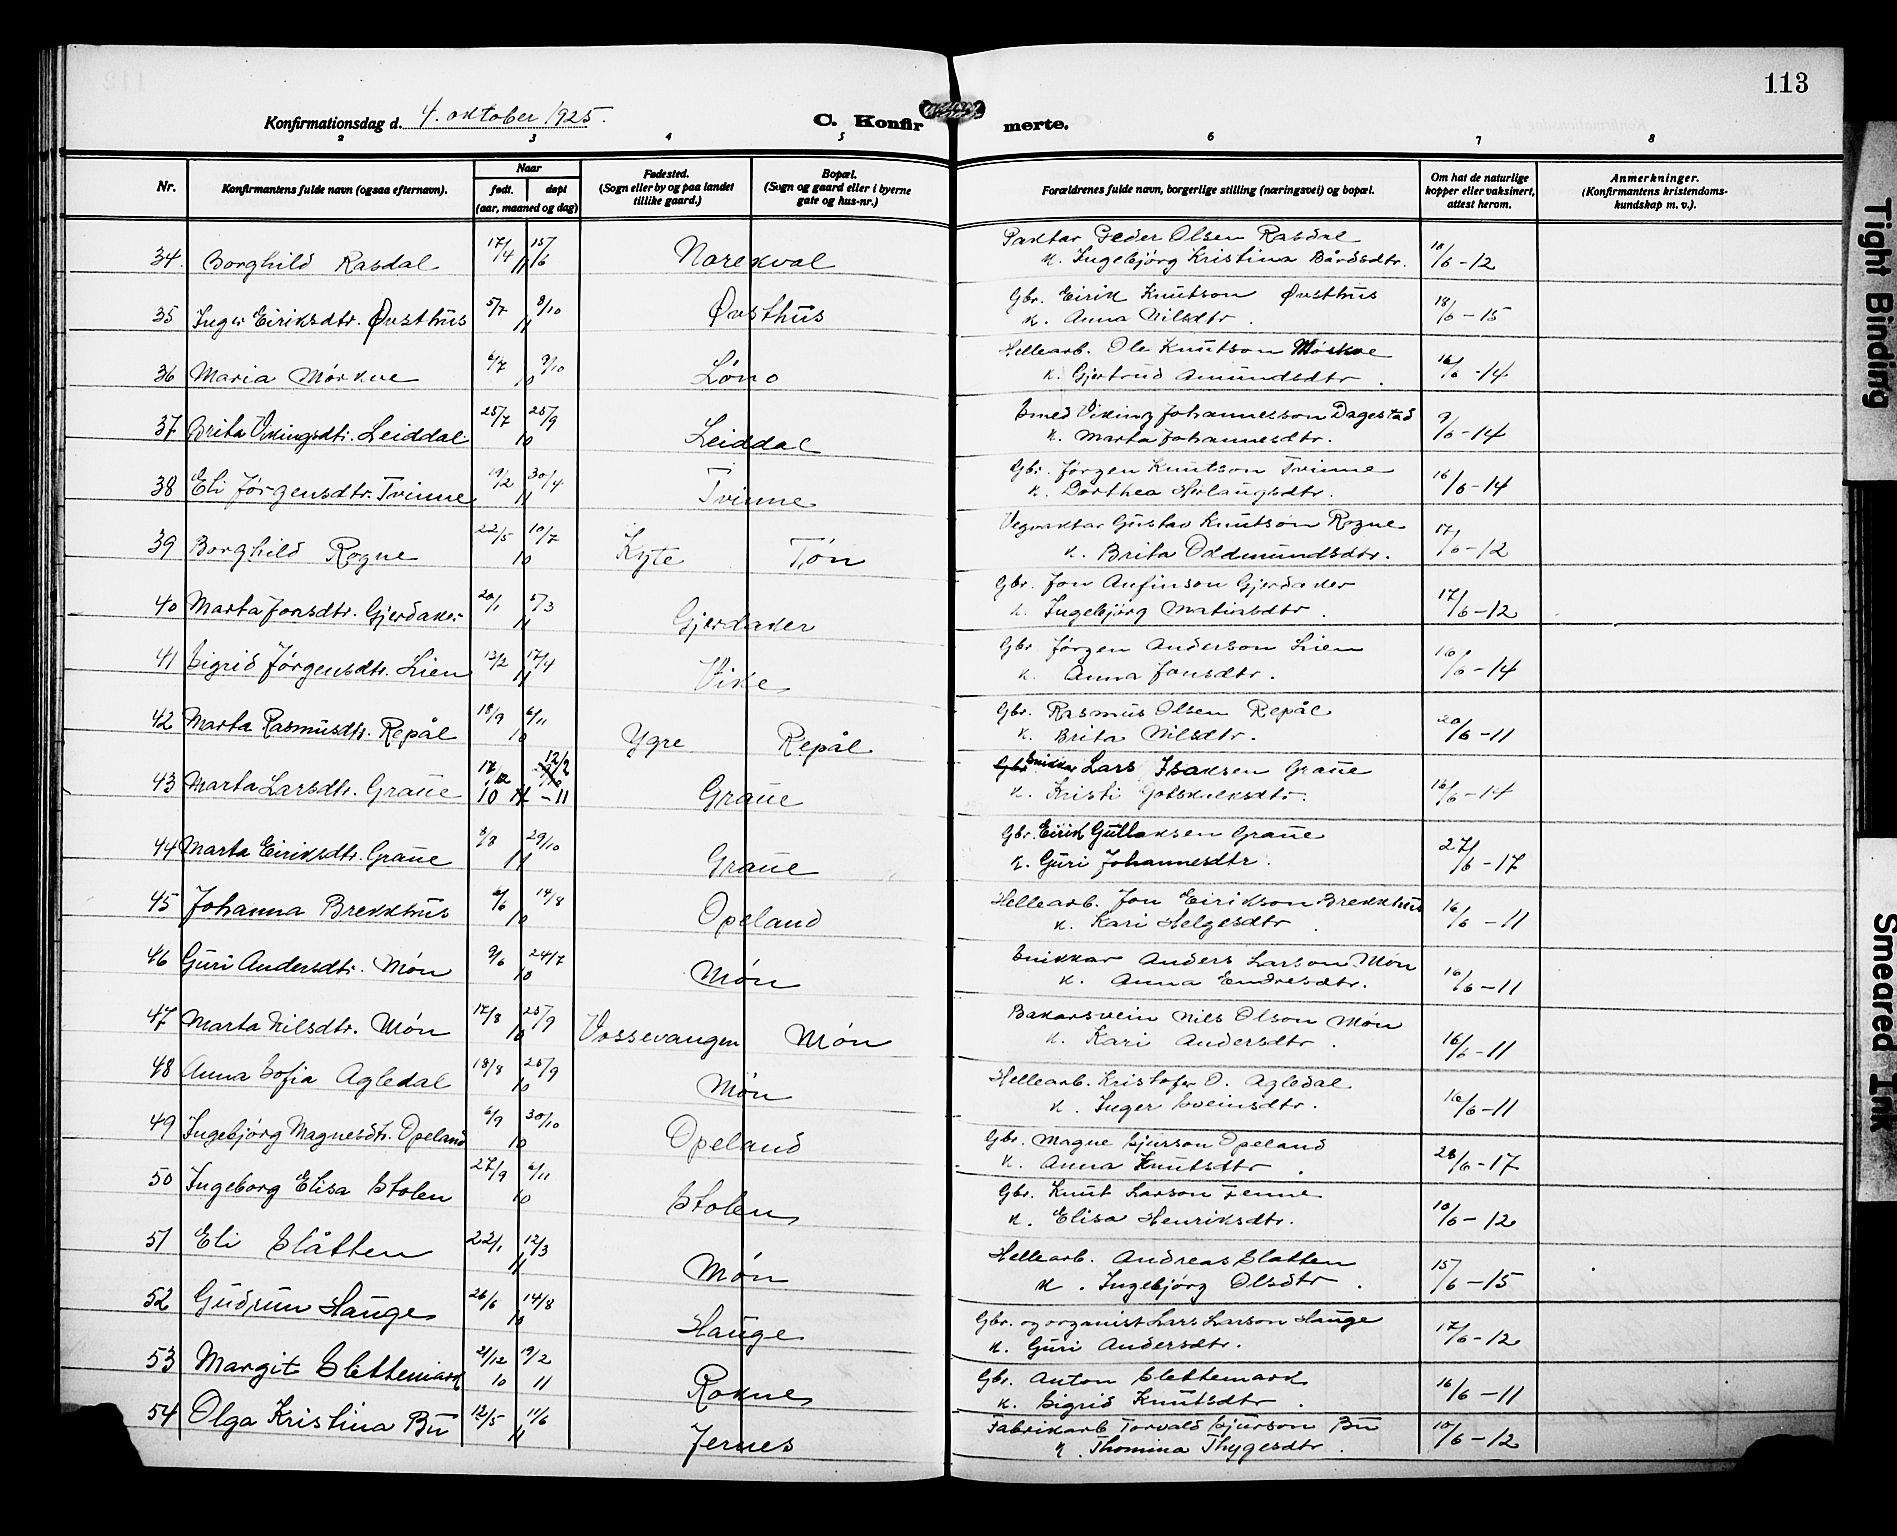 113
Konfirmationsdag d. 4. oktober 1925.
C. Konfirmerte.
2 3 4 5 6 7 8
Nr.
Konfirmantens fulde navn (ogsaa efternavn).
Naar
født. døpt
(aar, maaned og dag)
Fødested.
(Sogn eller by og paa landet
tillike gaard.)
Bopæl.
(Sogn og gaard eller i byerne
gate og hus-nr.)
Forældrenes fulde navn, borgerlige stilling (næringsvei) og bopæl.
Om hat de naturlige
kopper eller vaksinert,
attest herom.
Anmerkninger.
(Konfirmantens kristendoms-
kundskap m. v.).
34. Borghild Rasdal 17/4 15/6 11 Norekval Paktar Peder Olsen Rasdal 10/6-12
k. Ingebjørg Kristina Bårdsdtr.
35 Inger Eiriksdtr. Øvsthus 5/7 8/10 11 Øvsthus Gbr. Eirik Knutson Øvsthus 18/6-15
k. Anna Nilsdtr.
36 Maria Mørkve 6/7 9/10 10 Løno Hellearb. Ole Knutson Mørkve 16/6-14
k. Gjertrud Amundsdtr.
37 Brita Vikingsdtr. Leiddal 25/7 25/9 10 Leiddal Smed Viking Johannesson Dagestad 9/6-14
k. Marta Johannesdtr.
38 Eli Jørgensdtr. Tvinne 19/2 30/4 11 Tvinne Gbr. Jørgen Knutson Tvinne 16/6-14
k. Dorthea Herlaugsdtr.
39 Borghild Rogne 22/5 10/7 10 Kyte Tøn Vegvaktar Gustav Knutson Rogne 17/6-12
k. Brita Oddmundsdtr.
40 Marta Jonsdtr. Gjerdaker 20/1 5/3 11 Gjerdaker Gbr. Jon Anfinson Gjerdaker 17/6-12
k. Ingebjørg Matiasdtr.
41 Sigrid Jørgensdtr. Lien 12/2 17/4 11 Vike Gbr. Jørgen Anderson Lien 16/6-14
k. Anna Jonsdtr.
42 Marta Rasmusdtr. Repål 18/9 6/11 10 Ygre Repål Gbr. Rasmus Olsen Repål 20/6-11
k. Brita Nilsdtr.
43 Marta Larsdtr. Graue 17/12 10 12/2 -11 Graue Gbr Snikkar Lars Isaksen Graue 16/6-14
k. Kristi Gotskalksdtr.
44 Marta Eiriksdtr. Graue 8/8 29/10 11 Graue Gbr. Eirik Gullaksen Graue 27/6-17
k. Guri Johannesdtr.
45 Johanna Brekkhus 6/6 14/8 10 Opeland Hellearb. Jon Eirikson Brekkhus 16/6-11
k. Kari Helgesdtr.
46 Guri Andersdtr. Møn 9/6 24/7 10 Møn Snikkar Anders Larson Møn 16/6-11
k. Anna Endresdtr.
47 Marta Nilsdtr. Møn 17/8 25/9 10 Vossevangen Møn Bakarsvein Nils Olson Møn 16/6-11
k. Kari Andersdtr.
48 Anna Sofia Agledal 18/8 25/9 10 Møn Hellearb. Kristofer O. Agledal 16/6-11
k. Inger Sveinsdtr.
49 Ingebjørg Magnesdtr. Opeland 6/9 30/10 10 Opeland Gbr. Magne Sjurson Opeland 28/6-17
k. Anna Knutsdtr.
50 Ingeborg Elisa Stolen 27/9 6/11 10 Stolen Gbr. Knut Larson Fenne 10/6-12
k. Elisa Henriksdtr.
51 Eli Slåtten 22/1 12/3 11 Møn Hellearb. Andreas Slåtten 15/6-15
k. Ingebjørg Olsdtr.
52 Gudrun Hauge 26/6 14/8 10 Hauge Gbr. og organist Lars Larson Hauge 17/6-12
k. Guri Andersdtr.
53 Margit Slettemark 21/12 10 19/2 11 Rokne Gbr. Anton Slettemark 16/6-11
k. Sigrid Knutsdtr.
54 Olga Kristina Bu 12/5 11/6 11 Jernes Fabrikarb Torvald Sjurson Bu 10/6-12
k. Thomina Thygesdtr.
Tight Binding
Smeared Ink